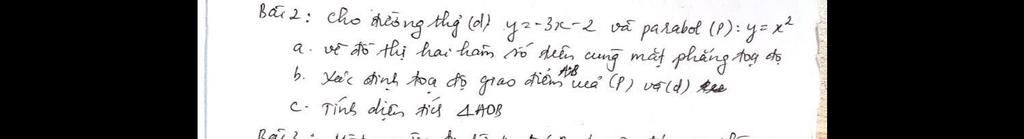 Bài 2: Cho đường thg (d) y = -3x - 2 và parabol (P): y = x²
a. vẽ đồ thị hai hàm số trên cùng mặt phẳng toạ độ
b. Xác định toạ độ giao điểm A,B của (P) và (d)
c. Tính diện tích △AOB